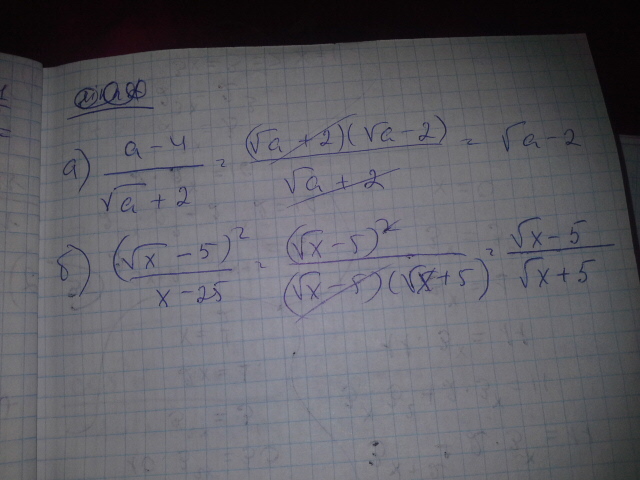 а) a-4 / √a + 2 = (√a + 2)(√a - 2) / √a + 2 = √a - 2
б) (√x - 5)² / x - 25 = (√x - 5)² / (√x - 5)(√x + 5) = √x - 5 / √x + 5